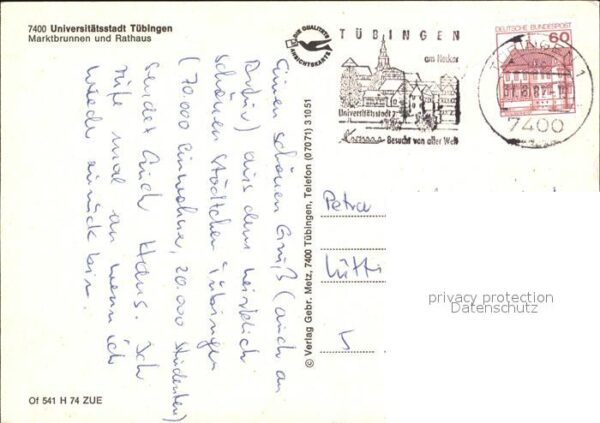 7400 Universitätsstadt Tübingen
Marktbrunnen und Rathaus
Einen schönen Gruß (auch an
aus dem herrlich
schönen Städtchen Tübingen
(70.000 Einwohner, 20.000 Studenten)
sendet Euch Hans. Ich
rufe mal an wenn ich
wieder zurück bin.
Of 541 H 74 ZUE
© Verlag Gebr. Metz, 7400 Tübingen, Telefon (0 70 71) 3 10 51
DIE QUALITÄTS
ANSICHTSKARTE
TÜBINGEN
am Neckar
Universitätsstadt
Besucht von aller Welt
DEUTSCHE BUNDESPOST
60
7400
Petra
privacy protection
Datenschutz